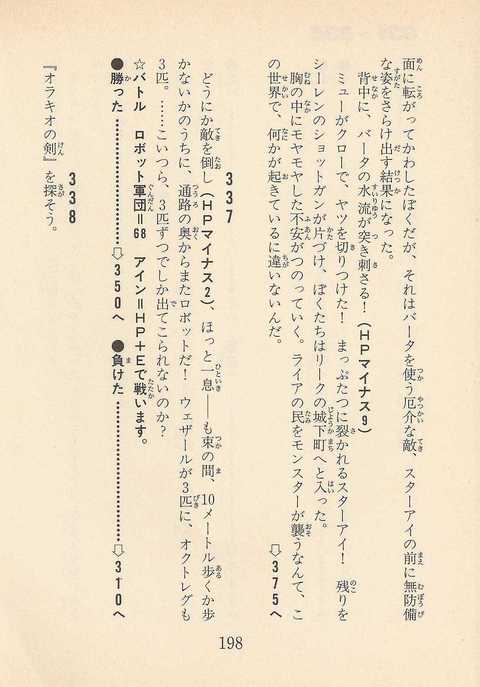 面に転がってかわしたぼくだが、それはバータを使う厄介な敵、スターアイの前に無防備
な姿をさらけ出す結果になった。
背中に、バータの水流が突き刺さる！（ＨＰマイナス９）
ミューがクローで、ヤツを切りつけた！　まっぷたつに裂かれるスターアイ！　残りを
シーレンのショットガンが片づけ、ぼくたちはリークの城下町へと入った。
胸の中にモヤモヤした不安がつのっていく。ライアの民をモンスターが襲うなんて、こ
の世界で、何かが起きているに違いないんだ。
⇨375へ
337
どうにか敵を倒し（ＨＰマイナス２）、ほっと一息――も束の間、10メートル歩くか歩
かないかのうちに、通路の奥からまたロボットだ！　ウェザールが３匹に、オクトレグも
３匹。……こいつら、３匹ずつでしか出てこられないのか？
☆バトル　ロボット軍団＝68　アイン＝ＨＰ＋Ｅで戦います。
●勝った……………⇨350へ　●負けた……………⇨310へ
338
『オラキオの剣』を探そう。
198